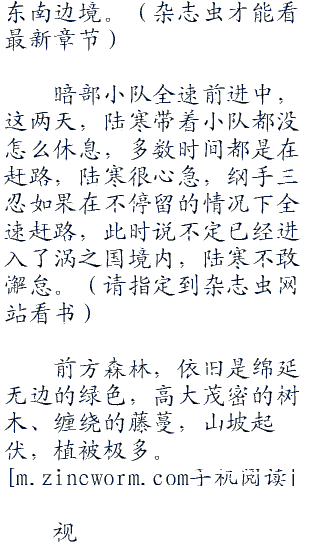 东南边境。（杂志虫才能看
最新章节）
暗部小队全速前进中，
这两天，陆寒带着小队都没
怎么休息，多数时间都是在
赶路，陆寒很心急，纲手三
忍如果在不停留的情况下全
速赶路，此时说不定已经进
入了涡之国境内，陆寒不敢
懈怠。（请指定到杂志虫网
站看书）
前方森林，依旧是绵延
无边的绿色，高大茂密的树
木、缠绕的藤蔓，山坡起
伏，植被极多。
[m.zincworm.com手机阅读i
视